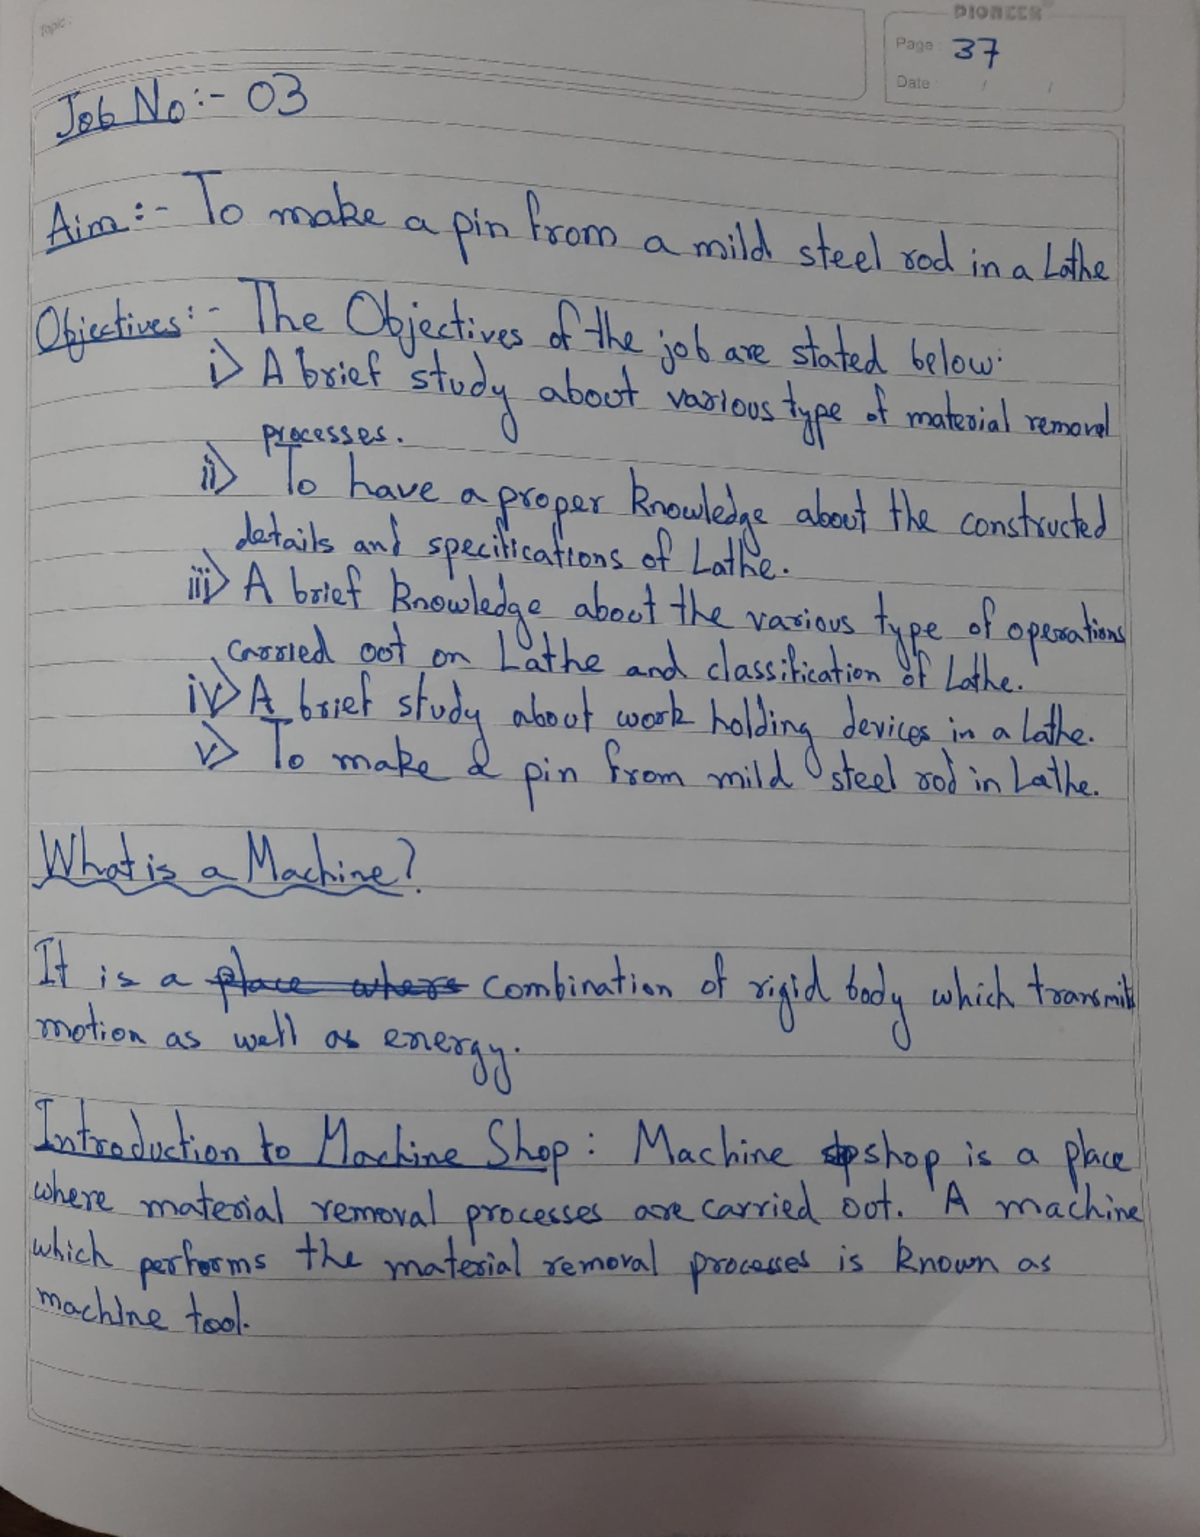 Topic:
PIONEER
Page: 37
Date: / /
Job No:- 03
Aim:- To make a pin from a mild steel rod in a Lathe
Objectives:- The Objectives of the job are stated below:
i) A brief study about various type of material removal
processes.
ii) To have a proper knowledge about the constructed
details and specifications of Lathe.
iii) A brief knowledge about the various type of operations
carried out on Lathe and classification of Lathe.
iv) A brief study about work holding devices in a Lathe.
v) To make a pin from mild steel rod in Lathe.
What is a Machine?
It is a place where combination of rigid body which transmit
motion as well as energy.
Introduction to Machine Shop: Machine shop is a place
where material removal processes are carried out. A machine
which performs the material removal processes is known as
machine tool.